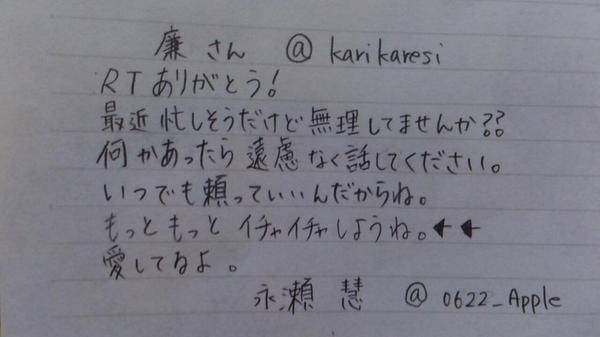 廉さん @karikaresi
RTありがとう!
最近忙しそうだけど無理してませんか??
何かあったら遠慮なく話してください。
いつでも頼っていいんだからね。
もっともっとイチャイチャしようね。←←
愛してるよ。
永瀬 慧 @0622_Apple